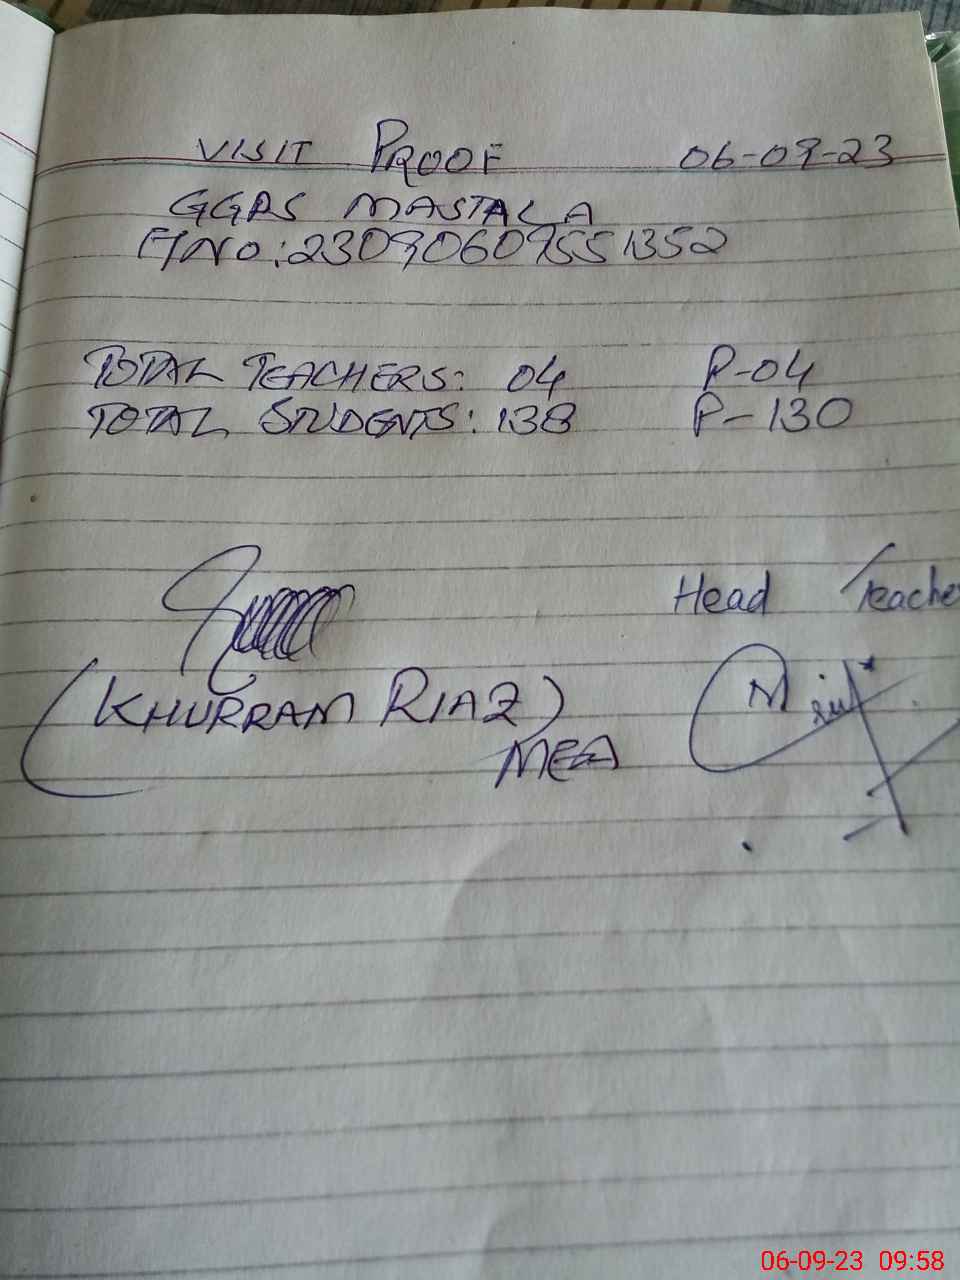 VISIT PROOF 06-09-23
GGPS MASTALA
F/NO:23090609551352
TOTAL TEACHERS: 04 P-04
TOTAL STUDENTS: 138 P-130
Head Teacher
(KHURRAM RIAZ)
MEA
06-09-23 09:58